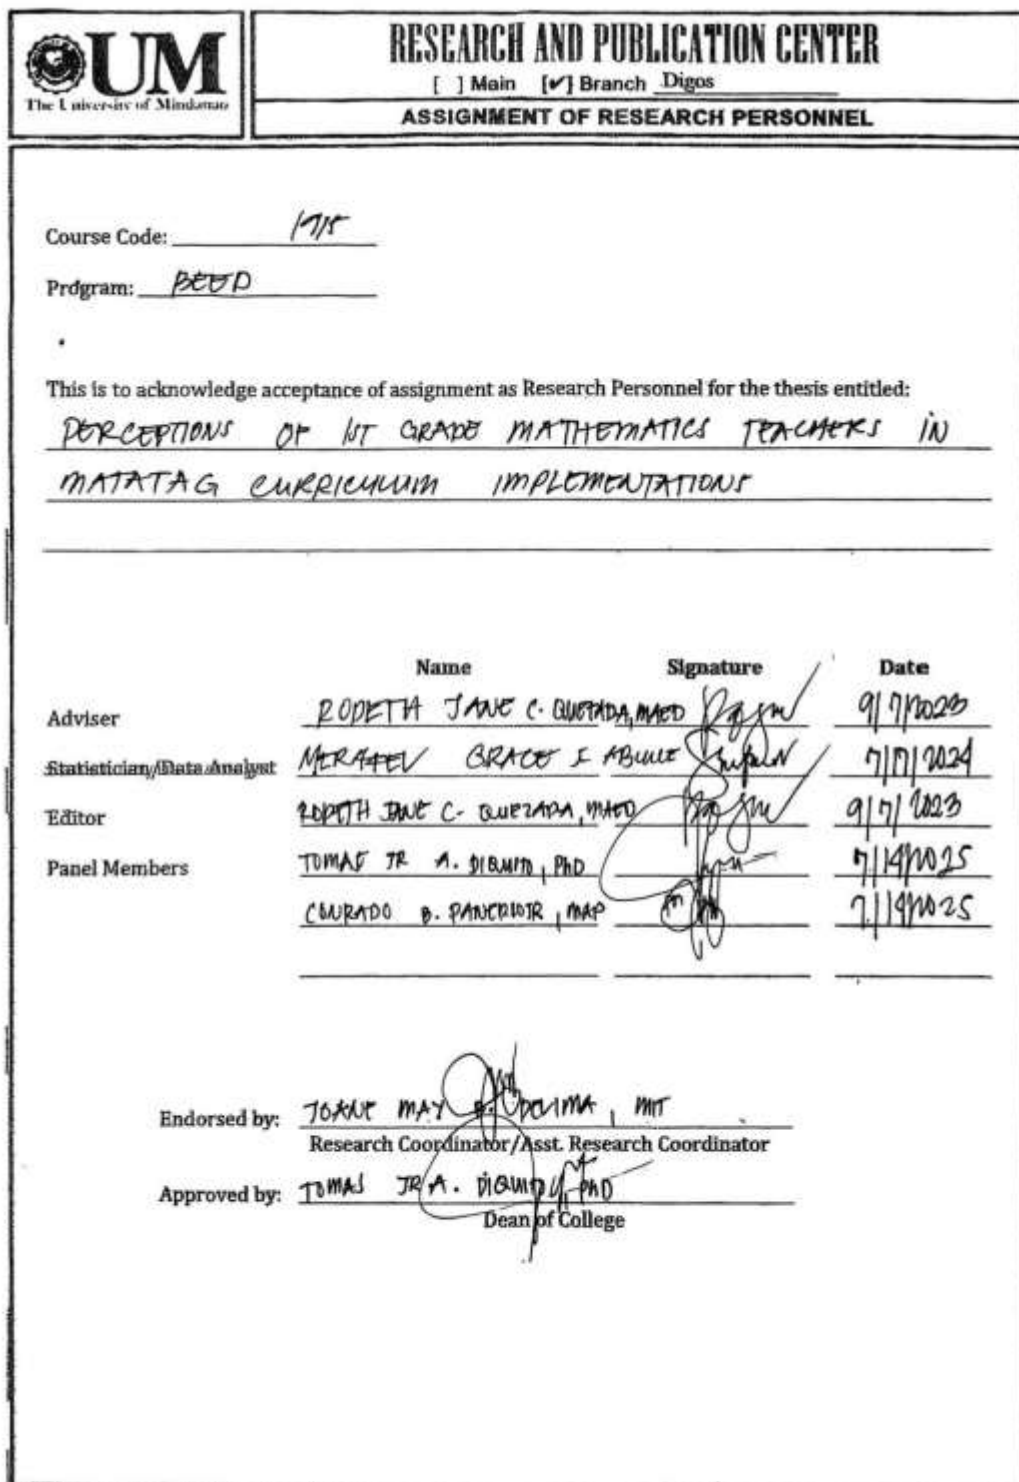 UM
The University of Mindanao
RESEARCH AND PUBLICATION CENTER
[ ] Main [✔] Branch Digos
ASSIGNMENT OF RESEARCH PERSONNEL
Course Code:
Program: BEED
This is to acknowledge acceptance of assignment as Research Personnel for the thesis entitled:
PERCEPTIONS OF 1ST GRADE MATHEMATICS TEACHERS IN
MATATAG CURRICULUM IMPLEMENTATIONS
Name Signature Date
Adviser RODETH JANE C. QUEZADA, MAED 9/7/2023
Statistician/Data Analyst GRACE 7/17/2024
Editor RODETH JANE C. QUEZADA, MAED 9/7/2023
Panel Members TOMAS JR A. DIQUITO, PhD 7/14/2025
CONRADO B. 7/14/2025
Endorsed by: JOANE MAY MIT
Research Coordinator/Asst. Research Coordinator
Approved by: TOMAS JR A. DIQUITO, PhD
Dean of College